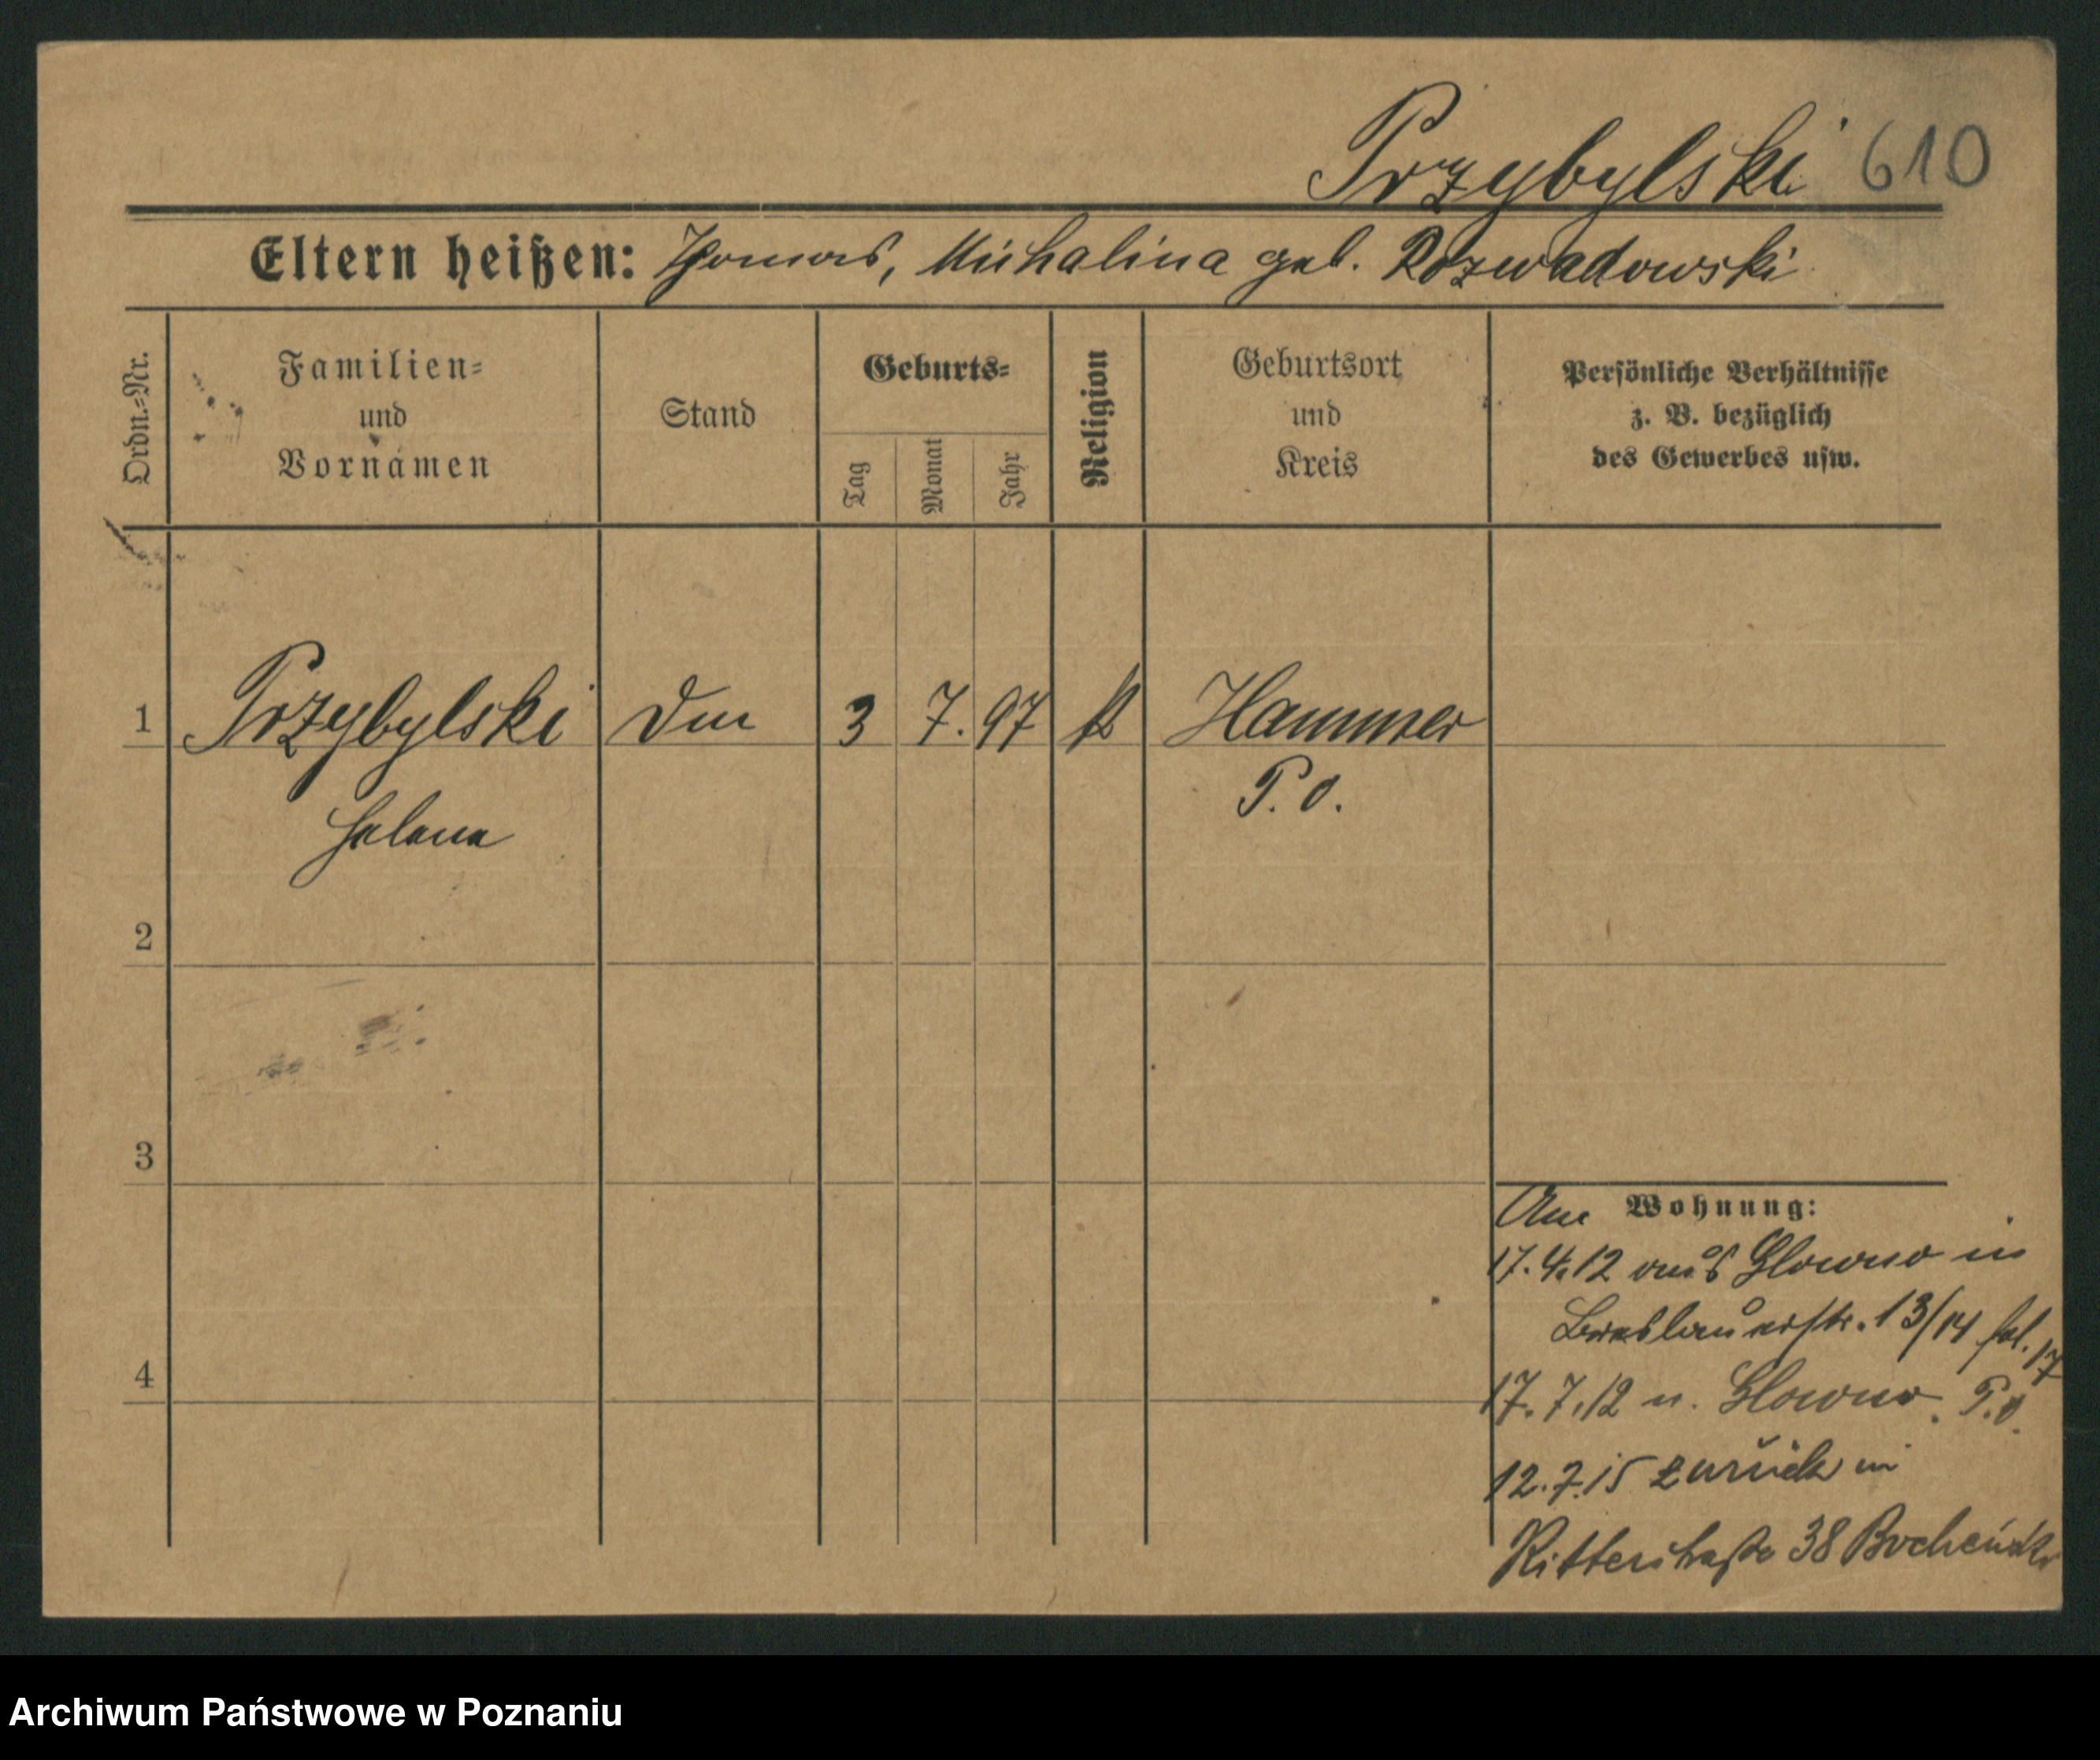 Przybylski 610
Eltern heißen: Thomas, Michalina geb. Rozwadowski
Ordn.-Nr.
Familien-
und
Vornamen
Stand
Geburts-
Tag
Monat
Jahr
Religion
Geburtsort
und
Kreis
Persönliche Verhältnisse
z. B. bezüglich
des Gewerbes usw.
1 Przybylski 3 7. 97 k Hammer
Helena P. O.
2
3
4
Wohnung:
17. 4. 12 aus Glowno in
Breslauerstr. 13/14
17. 7. 12 n. Glowno. P. O.
12. 7. 15 zurück in
Ritterstraße 38
Archiwum Państwowe w Poznaniu